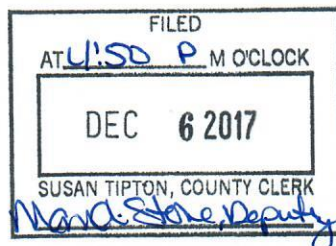 FILED
AT 4:50 P M O'CLOCK
DEC 6 2017
SUSAN TIPTON, COUNTY CLERK
Stone, Deputy